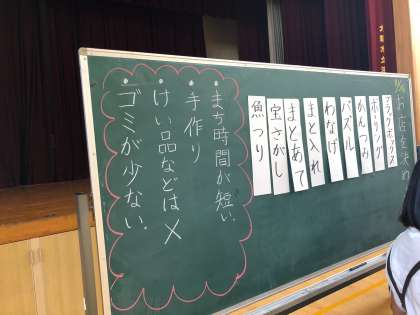 お店を決め
ブラックボックス
ボーリング
かんつみ
パズル
わなげ
まと入れ
まとあて
宝さがし
魚つり
・まち時間が短い。
・手作り
・けい品などは×
・ゴミが少ない。